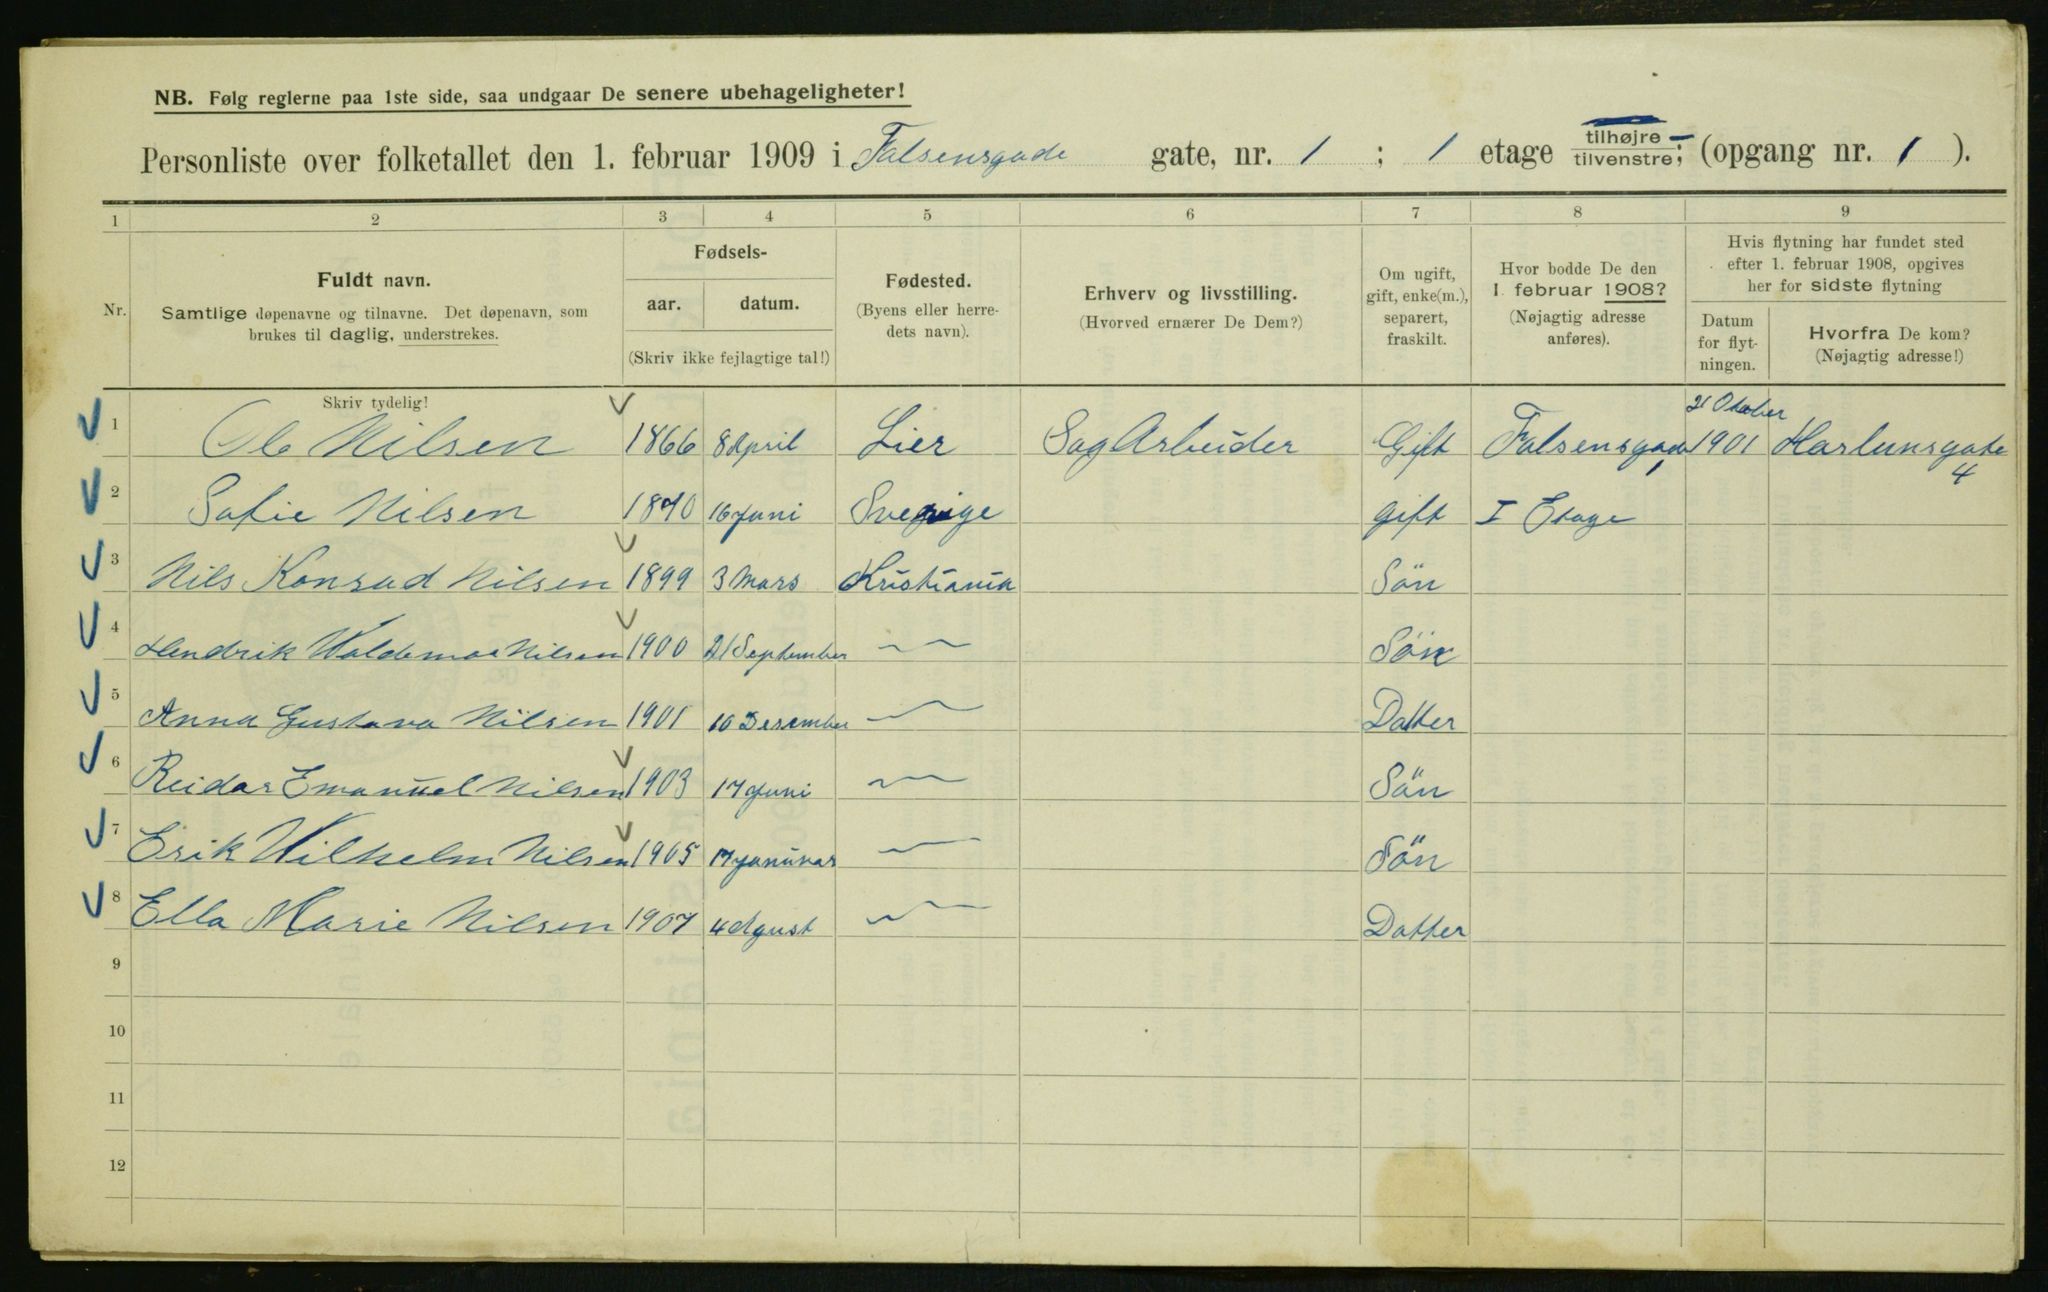 NB. Følg reglerne paa 1ste side, saa undgaar De senere ubehageligheter!
Personliste over folketallet den 1. februar 1909 i Falsensgade gate, nr. 1 ; 1 etage tilhøjre tilvenstre; (opgang nr. 1 ).
1 2 3 4 5 6 7 8 9
Nr.
Fuldt navn.
Samtlige døpenavne og tilnavne. Det døpenavn, som
brukes til daglig, understrekes.
Fødsels-
aar. datum.
(Skriv ikke fejlagtige tal!)
Fødested.
(Byens eller herre-
dets navn).
Erhverv og livsstilling.
(Hvorved ernærer De Dem?)
Om ugift,
gift, enke(m.),
separert,
fraskilt.
Hvor bodde De den
1. februar 1908?
(Nøjagtig adresse
anføres).
Hvis flytning har fundet sted
efter 1. februar 1908, opgives
her for sidste flytning
Datum
for flyt-
ningen.
Hvorfra De kom?
(Nøjagtig adresse!)
Skriv tydelig!
1 Ole Nilsen 1866 8 April Lier Sag Arbeider Gift Falsensgade 1 21 Otober 1901 4
2 Sofie Nilsen 1870 16 Juni Sverige gift I Etage
3 Nils Konrad Nilsen 1899 3 Mars Kristiania Sön
4 Hendrik Waldemar Nilsen 1900 21 September Sön
5 Anna Gustava Nilsen 1901 10 Desember Datter
6 Reidar Emanuel Nilsen 1903 17 Juni Sön
7 Erik Wilhelm Nilsen 1905 17 Januar Sön
8 Ella Marie Nilsen 1907 4 Agust Datter
9
10
11
12